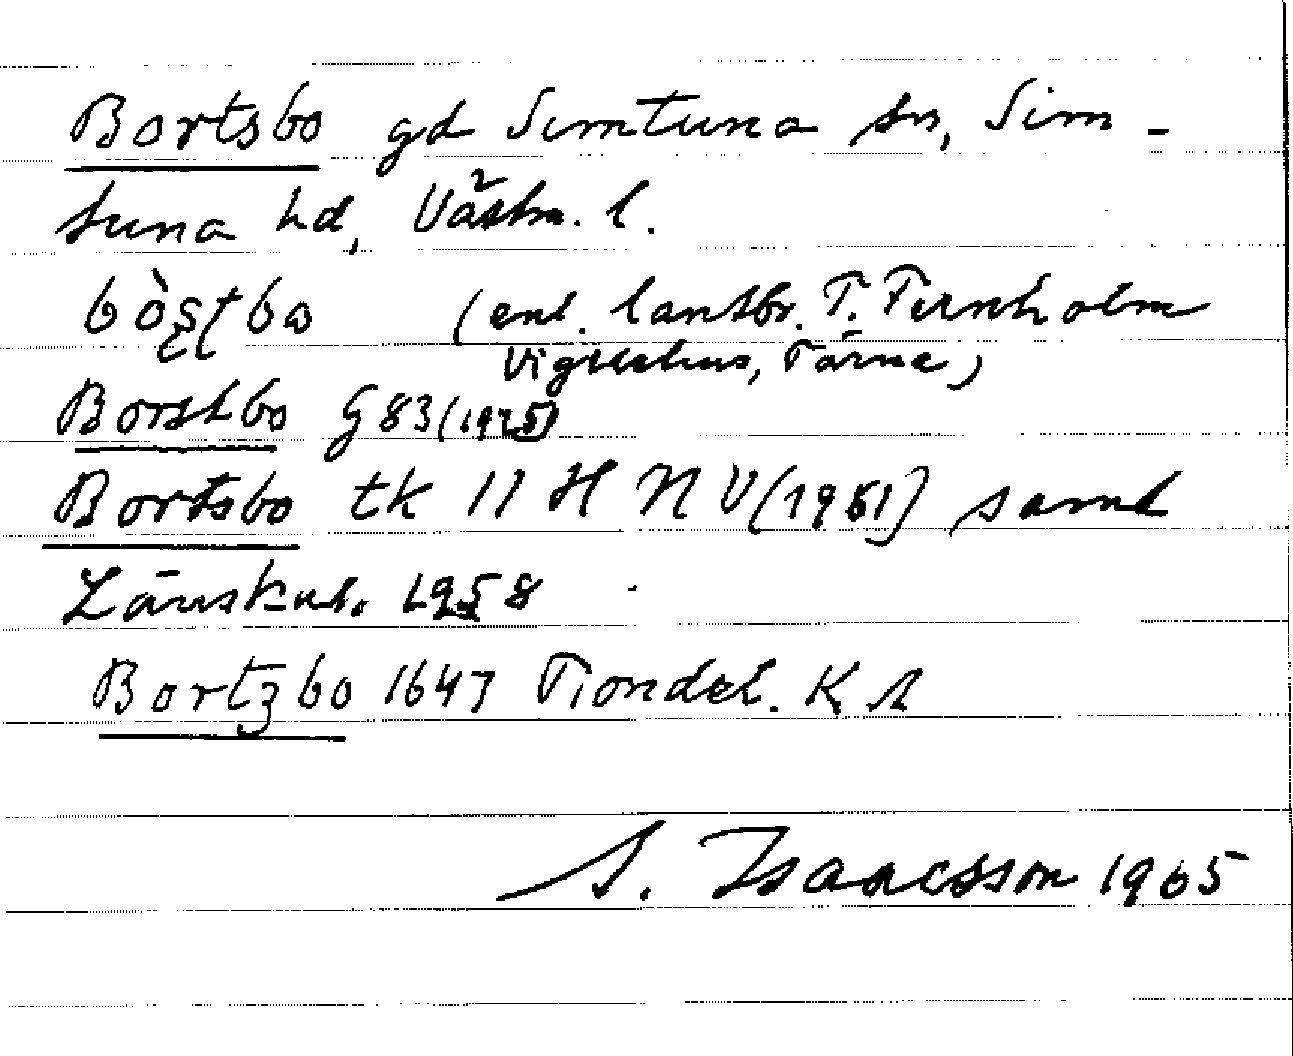 Bortsbo gd Simtuna sn, Sim-
tuna hd, Västm. l.
bòʂʈbo (enl. lantbr. T. Fernholm
Vigelsbo, Tärna)
Borstbo G 83 (1925)
Bortsbo tk 11 H NV (1961) samt
Länskal. 1958
Bortzbo 1647 Tiondel. KA
S. Isaacsson 1965